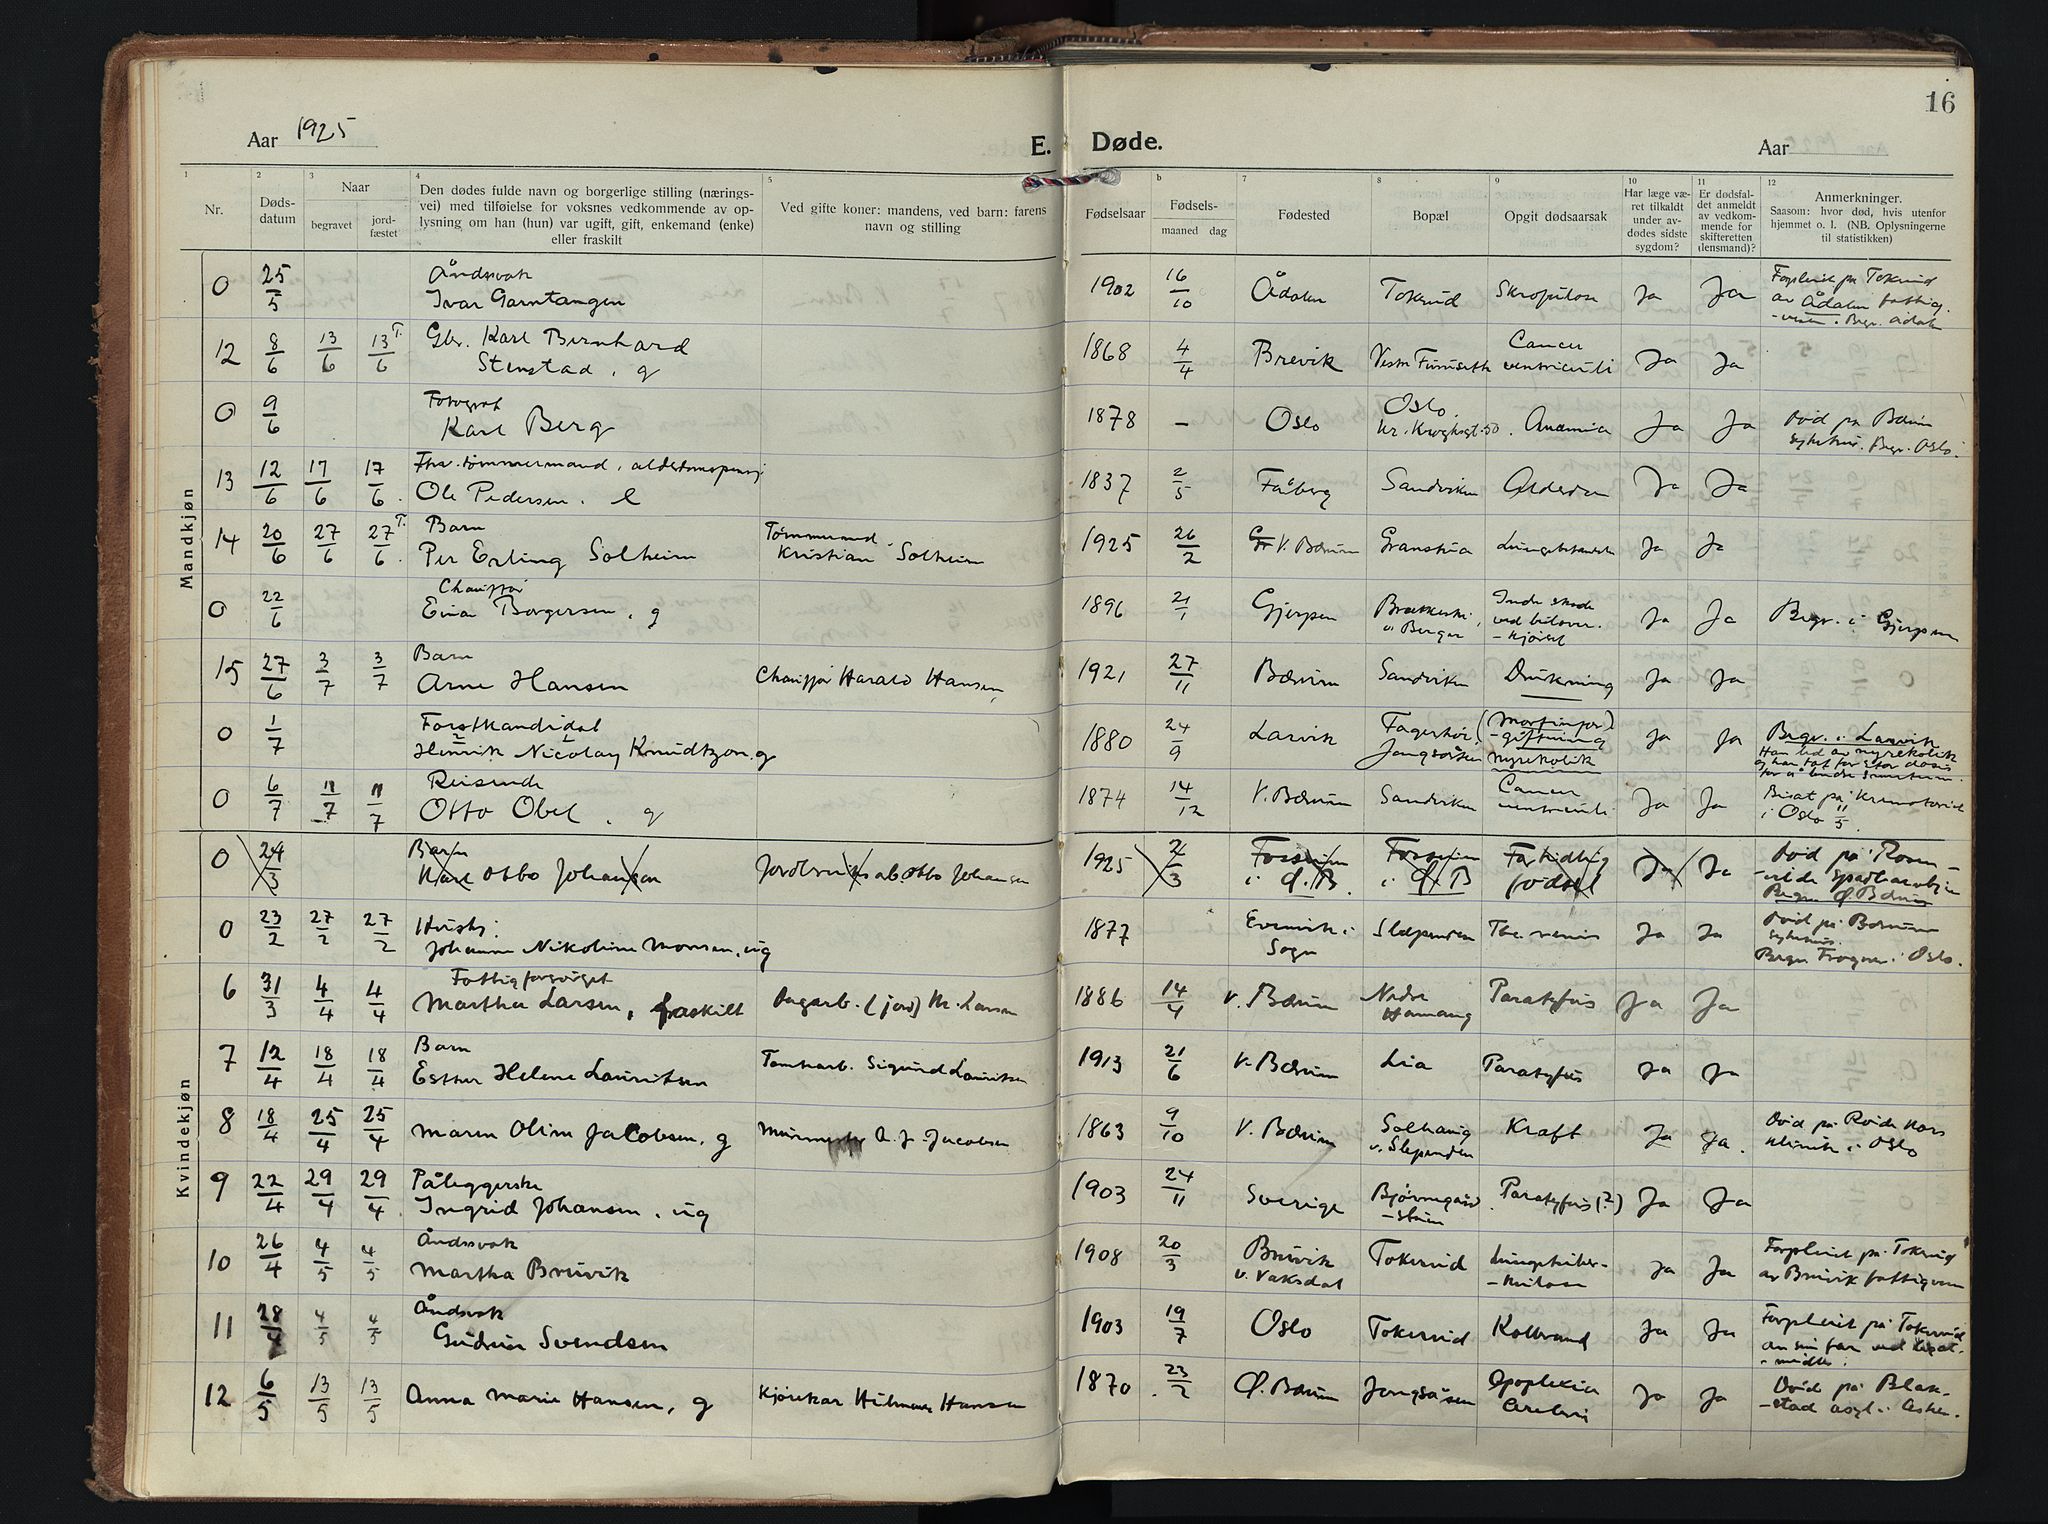 16
Aar 1925
E. Døde.
Aar
1 2 3 4 5 6 7 8 9 10 11 12
Nr.
Dødsdatum
Naar
begravet
jordfæstet
Den dødes fulde navn og borgerlige stilling (nærings-
vei) med tilføielse for voksnes vedkommende av op-
lysning om han (hun) var ugift, gift, enkemand (enke)
eller fraskilt
Ved gifte koner: mandens, ved barn: farens
navn og stilling
Fødselsaar
Fødsels-
maaned dag
Fødested
Bopæl
Opgit dødsaarsak
Har læge væ-
ret tilkaldt
under av-
dødes sidste
sygdom?
Er dødsfal-
det anmeldt
av vedkom-
mende for
skifteretten
(lensmand)?
Anmerkninger.
Saasom: hvor død, hvis utenfor
hjemmet o. l. (NB. Oplysningerne
til statistikken)
Mandkjøn
0 25/5 Åndssvak
Ivar Garntangen 1902 16/10 Ådalen Tokerud Skrofulose Ja Ja Forpleiet på Tokerud
av Ådalen fattig-
vesen. Begr. Ådalen
12 8/6 13/6 13/6 T. Gbr. Karl Bernhard
Stenstad, g 1868 4/4 Brevik Vestre Furuseth Cancer
ventriculi Ja Ja
0 9/6 Fotograf
Karl Berg 1878 – Oslo Oslo.
Kr. Kroghsgt. 50. Anæmia Ja Ja Død på Bærum
sykehus. Begr. Oslo.
13 12/6 17/6 17/6. Fhv. tømmermand, alderdomspensj
Ole Pedersen. e 1837 2/5 Fåberg Sandviken Alderdom Ja Ja
14 20/6 27/6 27/6 T. Barn
Per Erling Solheim Tømmermd.
Kristian Solheim 1925 26/2 V. Bærum Granstua Lungebetændelse Ja Ja
0 22/6 Chauffør
Einar Borgersen, g 1896 21/1 Gjerpen v. Berger Indre skade
ved bilover-
-kjørsel Ja Ja Begr. i Gjerpen
15 27/6 3/7 3/7 Barn
Arne Hansen Chauffør Harald Hansen, 1921 27/11 Bærum Sandviken Drukning Ja Ja
0 1/7 Forstkandidat
Henrik Nicolay Knudtzon, g 1880 24/9 Larvik Jongsåsen (Morfinfor-
-giftning)
Nyrekolik Ja Ja Begr. i Larvik
Han led av nyrekolik
og han tok for stor dosis
for å lindre smerten.
0 6/7 11/7 11/7 Reisende
Otto Obel, g 1874 14/12 V. Bærum Sandviken Cancer
ventriculi Ja Ja Bisat på Krematoriet
i Oslo 11/5.
Kvindekjøn
0 24/3 Barn
Karl Otto Johansen Jordbruksarb. Otto Johansen 1925 2/3 i Ø. B. i Ø. B Fortidlig
fødsel Ja Ja Død på
Begr. Ø. Bærum
0 23/2 27/2 27/2 Hush.
Johanne Nikoline Monsen, ug 1877 Evenvik i
Sogn Slæpenden Ja Ja Død på Bærum
sykehus.
Begr. Frogner i Oslo.
6 31/3 4/4 4/4 Fattigforsørget
Martha Larsen, fraskilt Dagarb. (jord) M. Larsen 1886 14/4 V. Bærum Nedre
Hamang Paratyfus Ja Ja
7 12/4 18/4 18/4 Barn
Esther Helene Lauritsen Tomtearb. Sigurd Lauritsen 1913 21/6 V. Bærum Lia Paratyfus Ja Ja
8 18/4 25/4 25/4 Maren Oline Jacobsen, g Murmester A. J. Jacobsen 1863 9/10 V. Bærum Solhaug
v. Slependen Kræft Ja Ja. Død på Røde Kors
klinik i Oslo
9 22/4 29/4 29/4 Påleggerske
Ingrid Johansen, ug 1903 24/11 Sverige Bjørnegård
-stuen Paratyfus (?) Ja Ja
10 26/4 4/5 4/5 Åndssvak
Martha Bruvik 1908 20/3 Bruvik
v. Vaksdal Tokerud Lungetuber-
-kulose Ja Ja Forpleiet på Tokerud
av Bruvik fattigvesen
11 28/4 4/5 4/5 Åndssvak
Gudrun Svendsen 1903 19/7 Oslo Tokerud Koldbrand Ja Ja Forpleiet på Tokerud
av sin far ved legat-
-midler.
12 6/5 13/5 13/5 Anna Marie Hansen, g Kjørekar Hilmar Hansen 1870. 23/2 Ø. Bærum Jongsåsen Apoplexia
cerebri Ja Ja Død på Blak-
-stad asyl i Asker.